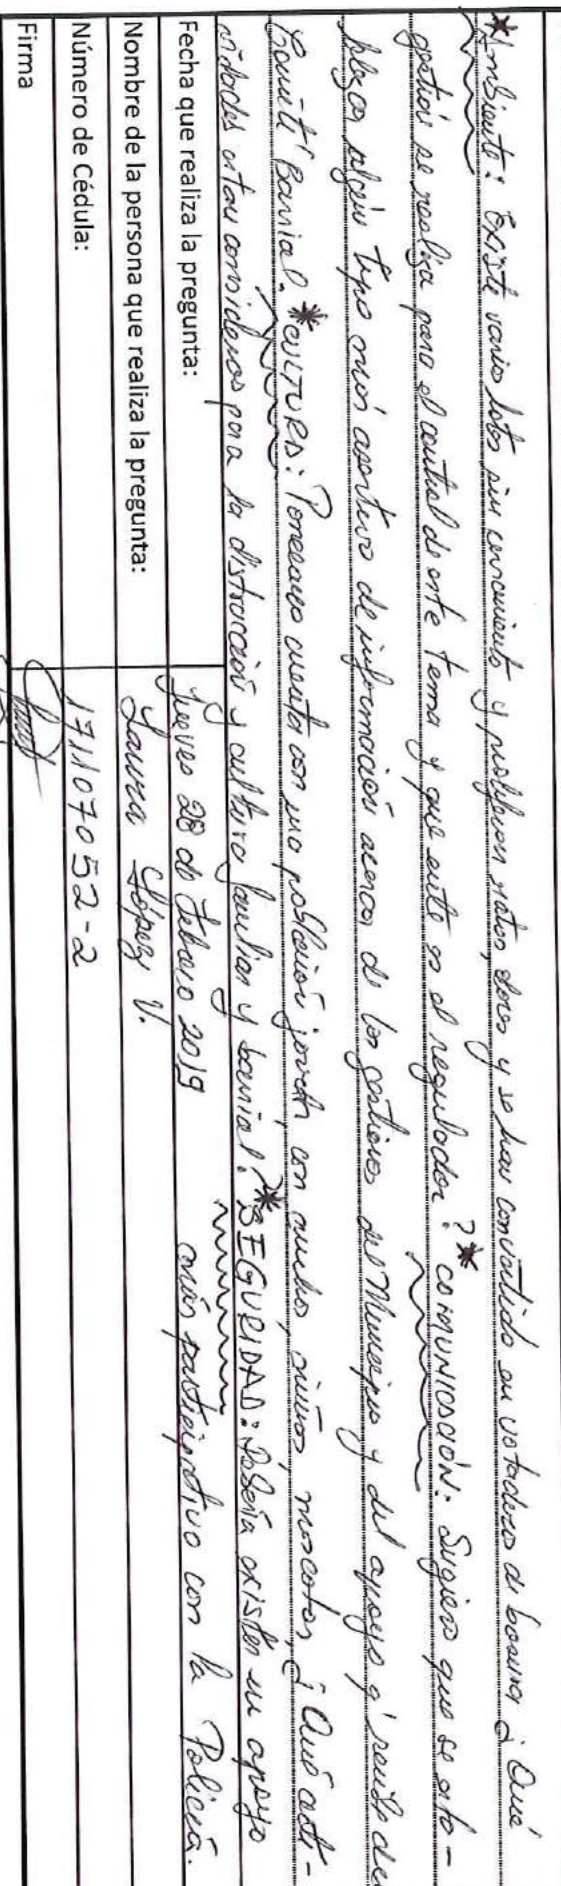 *Ambiente: Existe varios lotes sin cerramiento y proliferan ratas, olores y se han convertido en votadero de basura ¿ Qué
gestión se realiza para el control de este tema y que ente es el regulador? *COMUNICACIÓN: Sugiero que se esta-
blezca algún tipo más asertivo de información acerca de las gestiones del Municipio y del apoyo del
Comité Barrial. *CULTURA: Ponceano cuenta con una población joven con muchos niños, mascotas, ¿ Qué acti-
vidades estan considerados para la distracción y cultura familiar y barrial? *SEGURIDAD: Debería existir un apoyo
más participativo con la Policía.
Fecha que realiza la pregunta: Jueves 28 de Febrero 2019
Nombre de la persona que realiza la pregunta: Laura López V.
Número de Cédula: 171107052-2
Firma